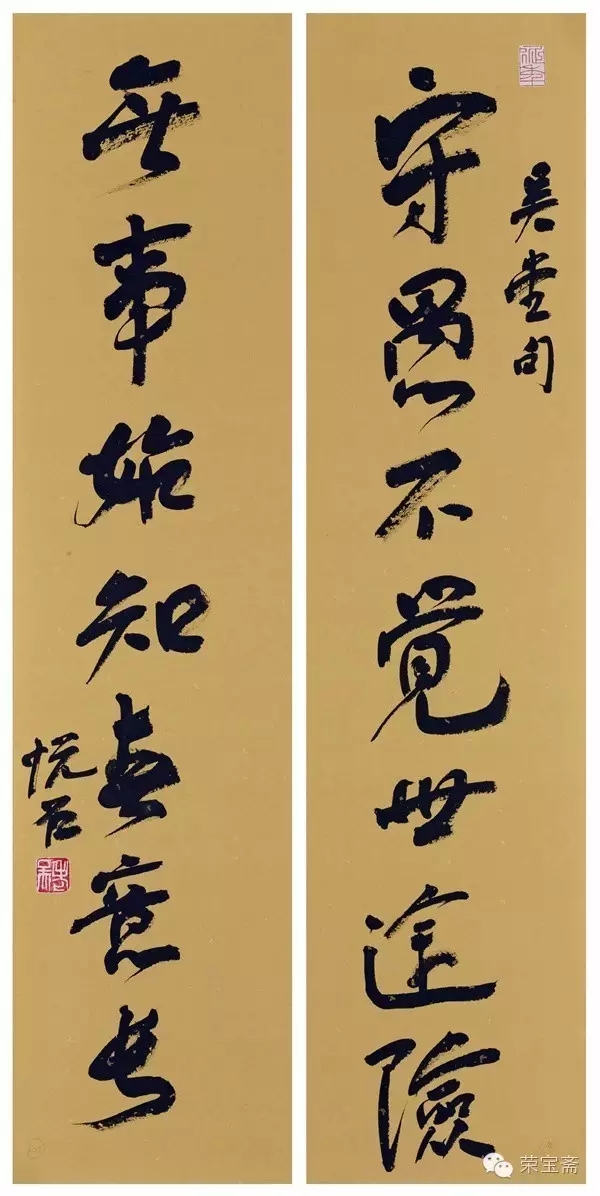 吴奎句
守愚不覺世途險
無事始知春意長
悦石
荣宝斋